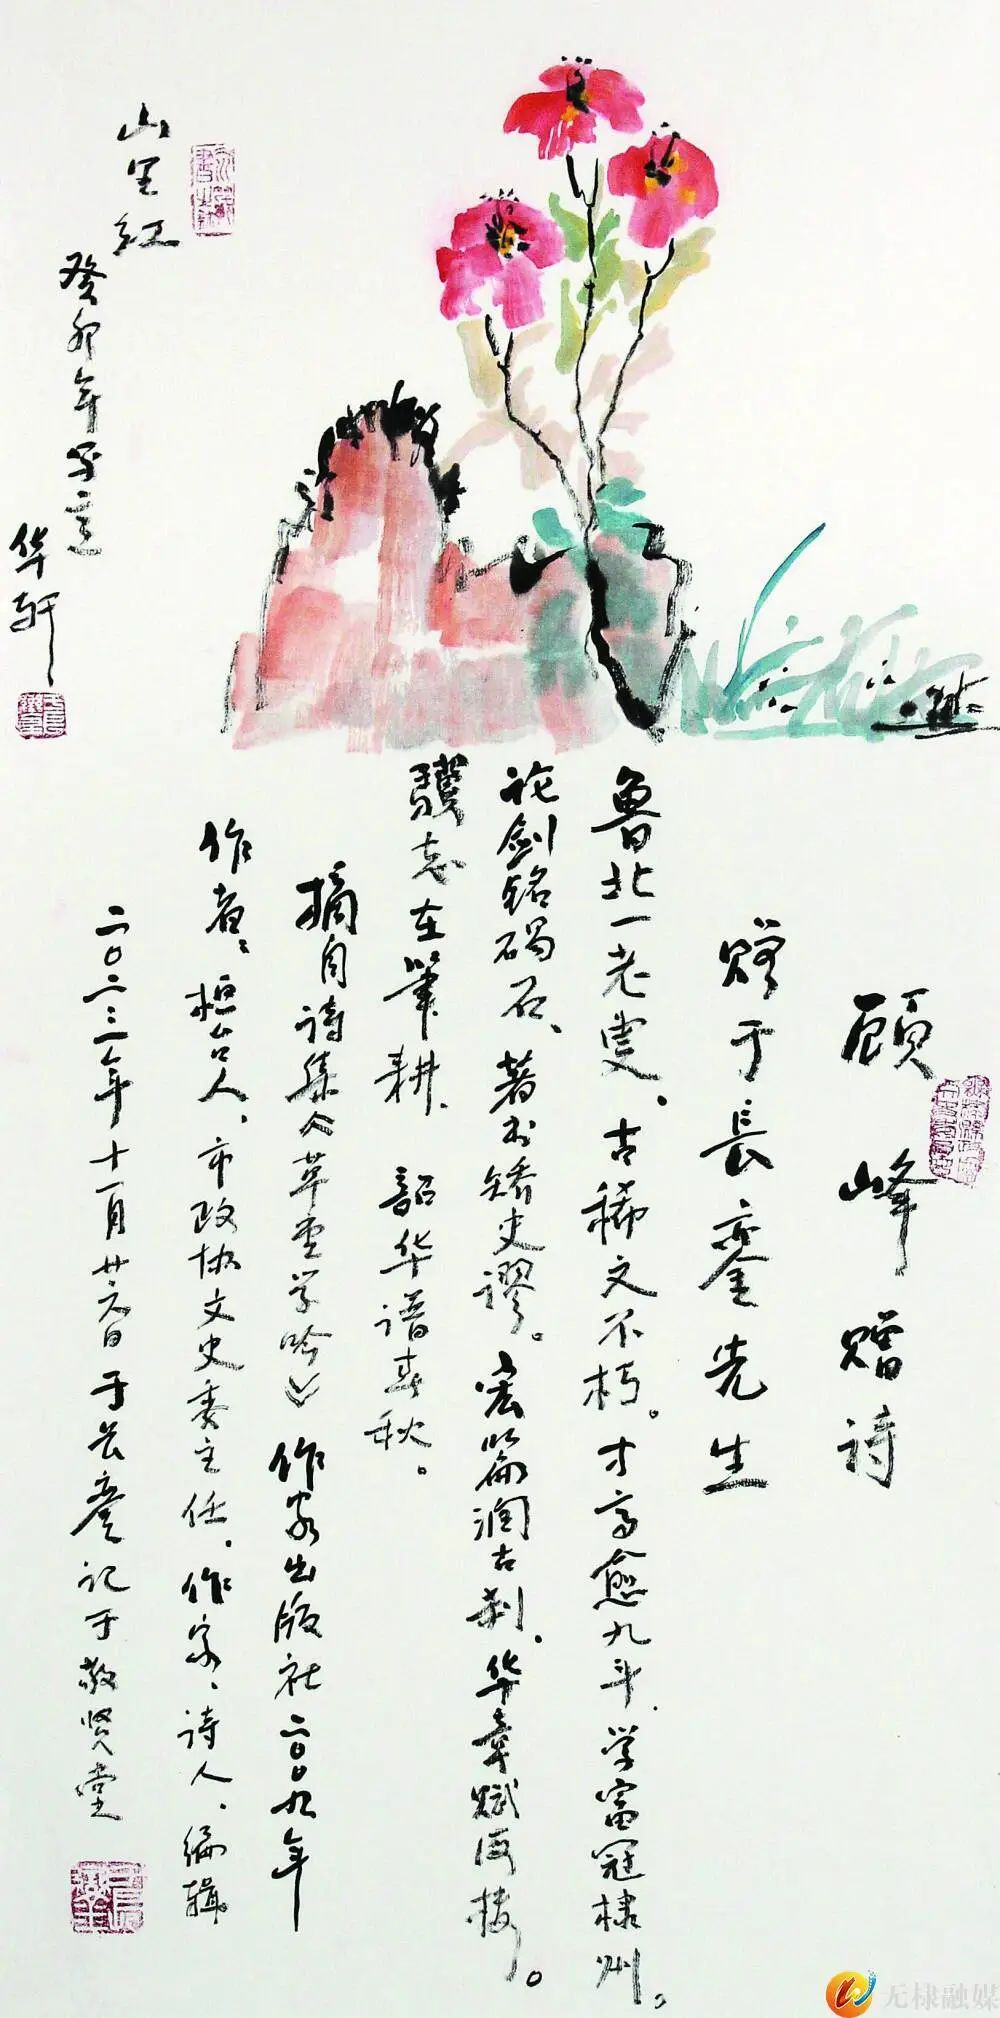 山里红
癸卯年
华轩
顾峰赠诗
赠于长銮先生
鲁北一老叟。古稀文不朽。才高愈九斗。学富冠棣州。
论剑铭碣石、著书矫史谬。宏篇润古刹。华章赋海楼。
骥志在笔耕、韶华谱春秋。
摘自诗集《草堂学吟》作家出版社二〇〇九年
作者：桓台人、市政协文史委主任、作家、诗人、编辑
二〇二三年十一月廿六日于长銮记于敬贤堂
无棣融媒